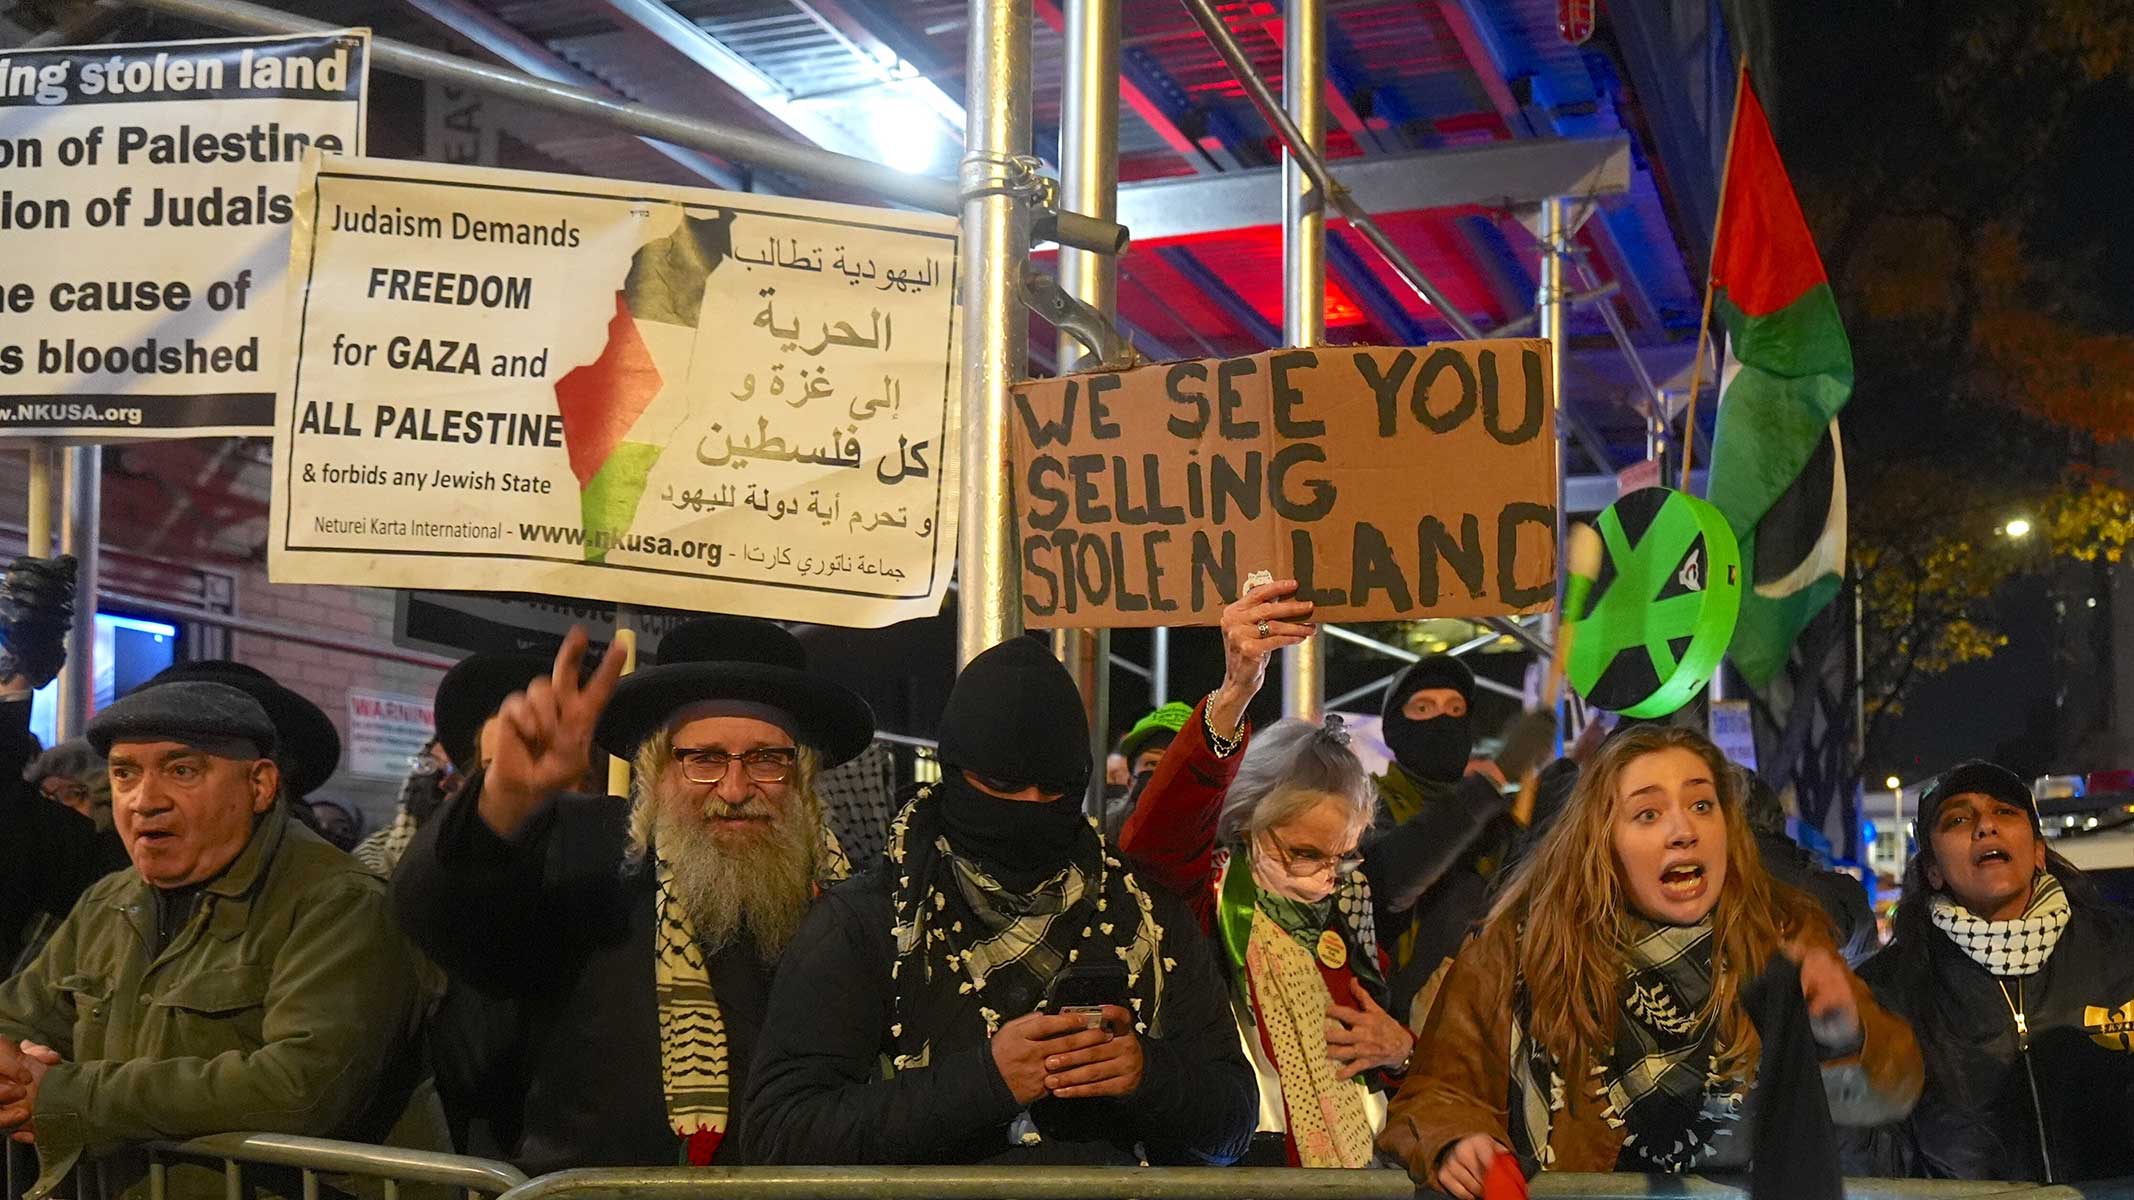 ing stolen land
on of Palestine
ion of Judais
e cause of
s bloodshed
w.NKUSA.org
Judaism Demands
FREEDOM
for GAZA and
ALL PALESTINE
& forbids any Jewish State
Neturei Karta International - www.nkusa.org -
اليهودية تطالب
الحرية
إلى غزة و
كل فلسطين
و تحرم أية دولة لليهود
جماعة ناتوري كارتا
WE SEE YOU
SELLiNG
STOLEN LAND
WARNING